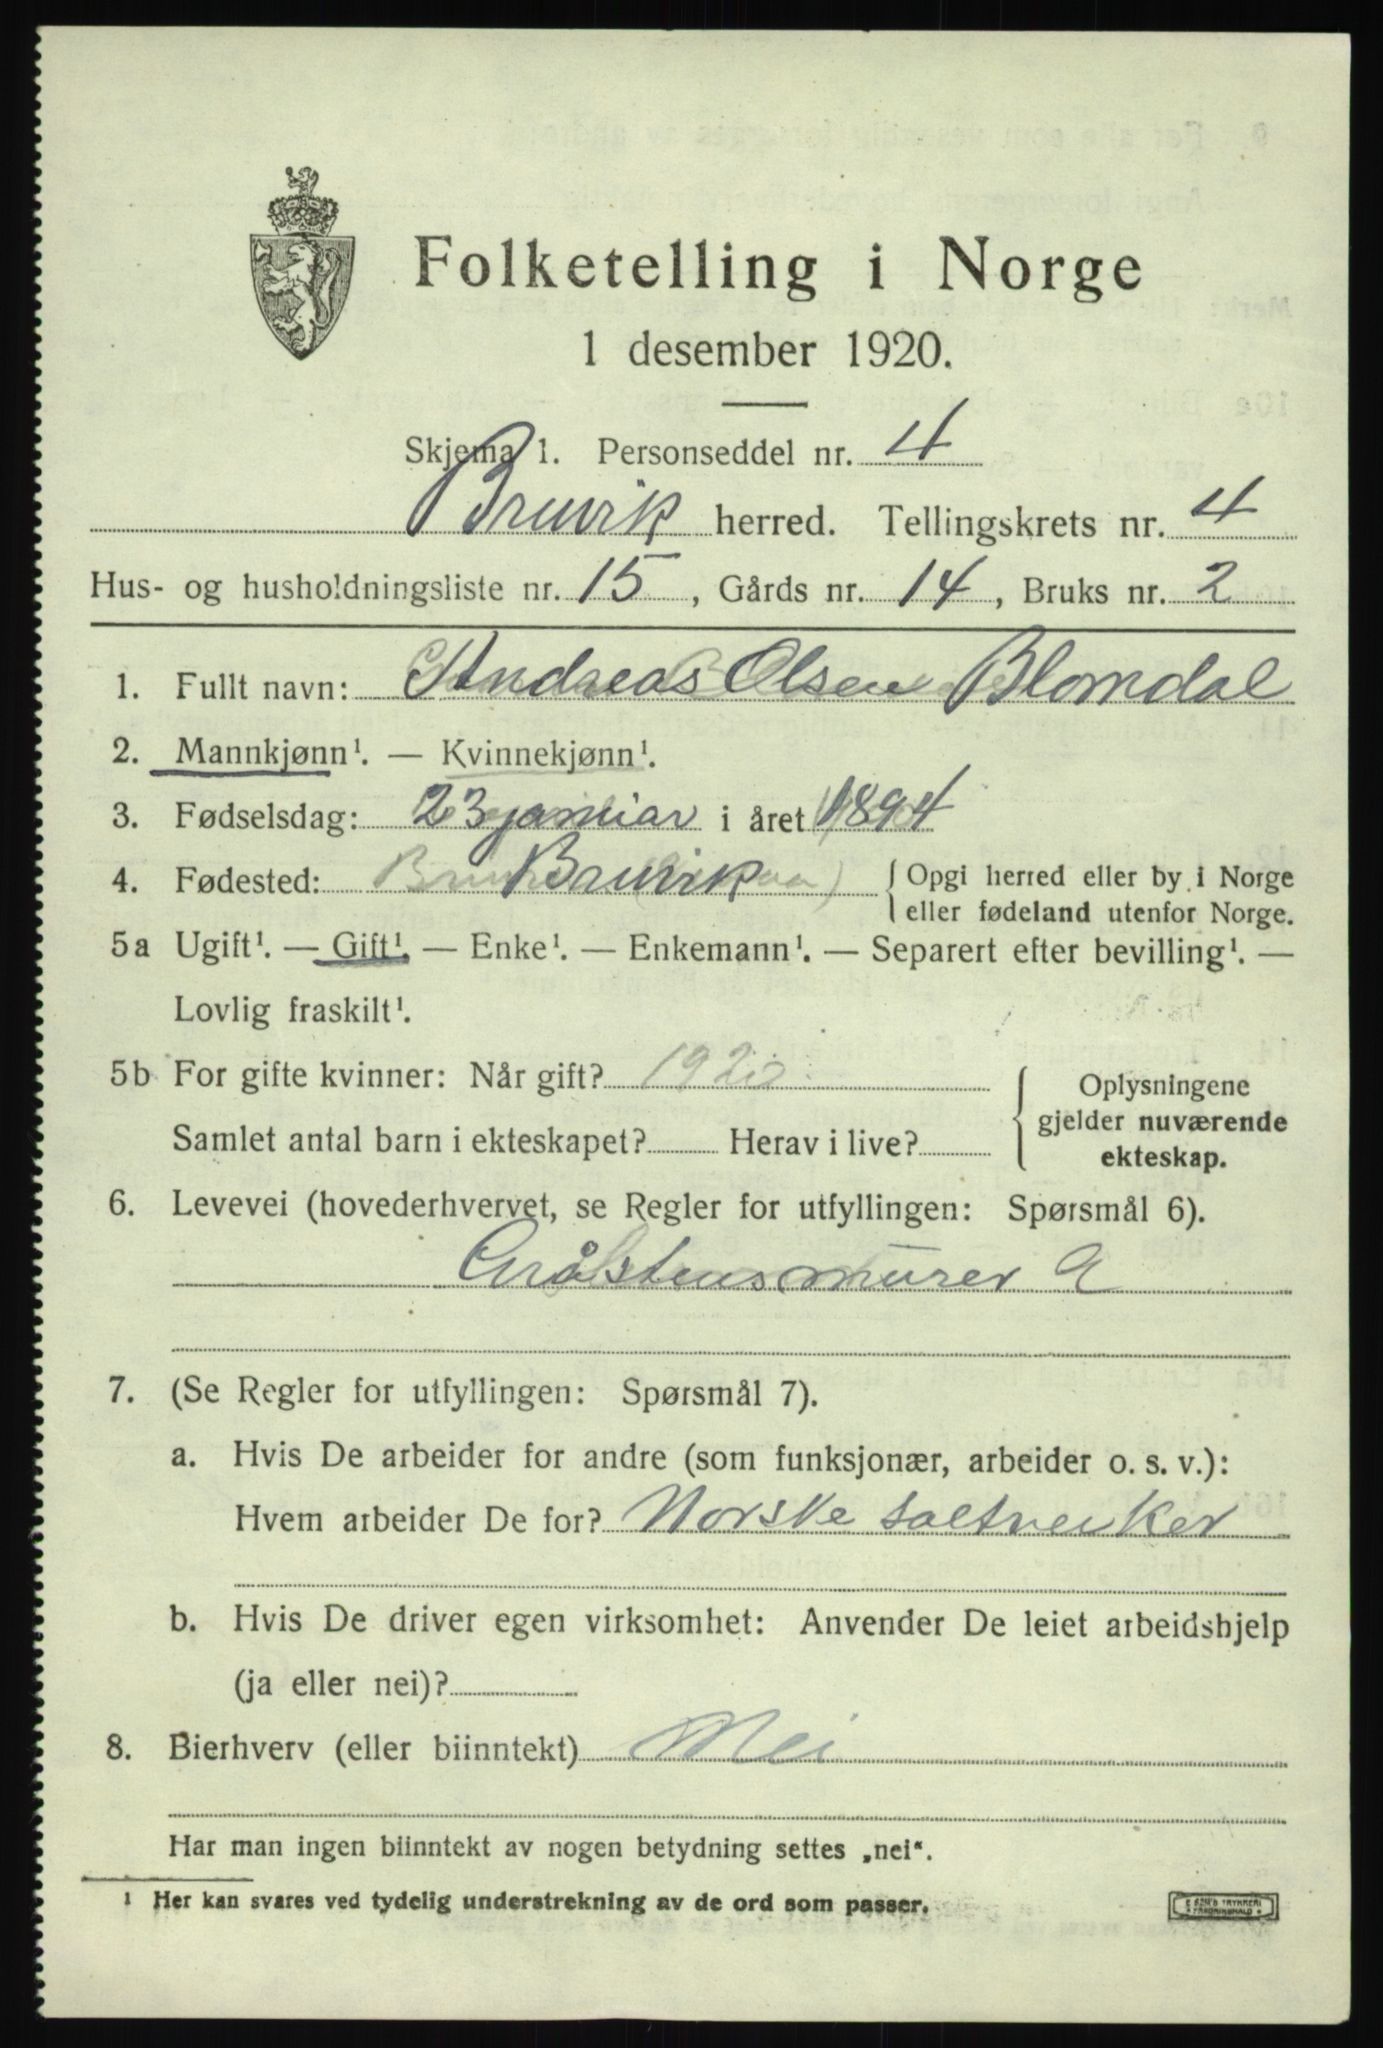 Folketelling i Norge
1 desember 1920.
Skjema 1. Personseddel nr. 4
Bruvik herred. Tellingskrets nr. 4
Hus- og husholdningsliste nr. 15, Gårds nr. 14, Bruks nr. 2
1. Fullt navn: Andreas Olsen Blomdal
2. Mannkjønn¹. — Kvinnekjønn¹.
3. Fødselsdag: 23 januar i året 1894
4. Fødested: Bruvik { Opgi herred eller by i Norge
eller fødeland utenfor Norge.
5a Ugift¹. — Gift¹. — Enke¹. — Enkemann¹. — Separert efter bevilling¹. —
Lovlig fraskilt¹.
5b For gifte kvinner: Når gift? 1920
Samlet antal barn i ekteskapet? Herav i live?
{ Oplysningene
gjelder nuværende
ekteskap.
6. Levevei (hovederhvervet, se Regler for utfyllingen: Spørsmål 6).
Gråstensmurer
7. (Se Regler for utfyllingen: Spørsmål 7).
a. Hvis De arbeider for andre (som funksjonær, arbeider o. s. v.):
Hvem arbeider De for? Norske saltverker
b. Hvis De driver egen virksomhet: Anvender De leiet arbeidshjelp
(ja eller nei)?
8. Bierhverv (eller biinntekt) Nei
Har man ingen biinntekt av nogen betydning settes „nei“.
¹ Her kan svares ved tydelig understrekning av de ord som passer.